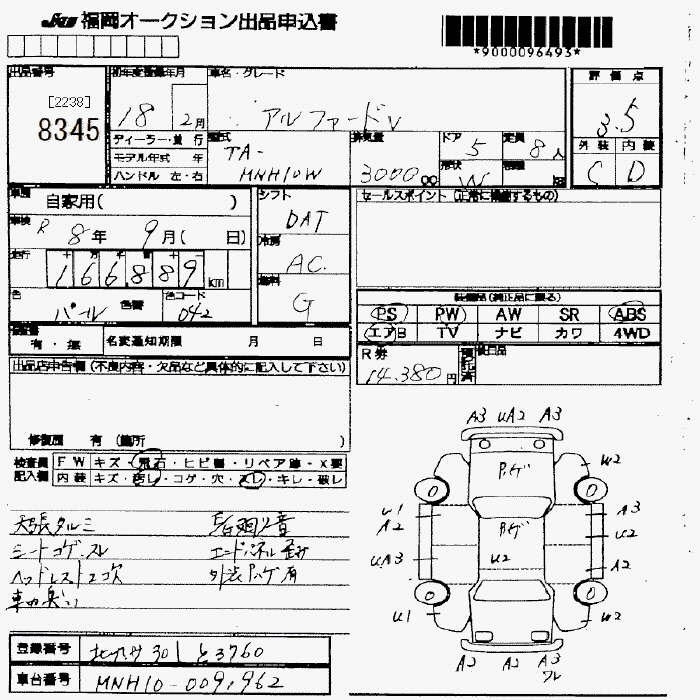 福岡オークション出品申込書
*9000096493*
出品番号
[2238]
8345
初年度登録年月
18 2月
車名・グレード
アルファードV
評価点
3.5
外装 内装
C D
ディーラー・並行
モデル年式 年
ハンドル 左・右
型式
TA-
MNH10W
排気量
3000cc
ドア
5
形状
W
定員
8人
車歴
自家用( )
車検
R 8年 9月( 日)
走行
166,889km
色
パール
色替
色コード
042
シフト
DAT
冷房
AC
燃料
G
セールスポイント(正常に機能するもの)
装備品(純正品に限る)
PS PW AW SR ABS
エアB TV ナビ カワ 4WD
有・無
名変通知期限 月 日
R券
14,380円
後日品
出品店申告欄(不良内容・欠品など具体的に記入して下さい)
修復歴 有(箇所 )
検査員記入欄
FW キズ・飛石・ヒビ割・リペア跡・X要
内装 キズ・汚レ・コゲ・穴・スレ・キレ・破レ
天張タルミ
シートコゲ・スレ
エンドパネル歪ミ
ヘッドレスト2コ欠
外装ハゲ有
A3 UA2 A3
ハゲ
W2
U1
A2
ハゲ
A3
U2
UA3
U2
A2
U1
W2
A2 A2 A3
登録番号
車台番号
MNH10-0091962